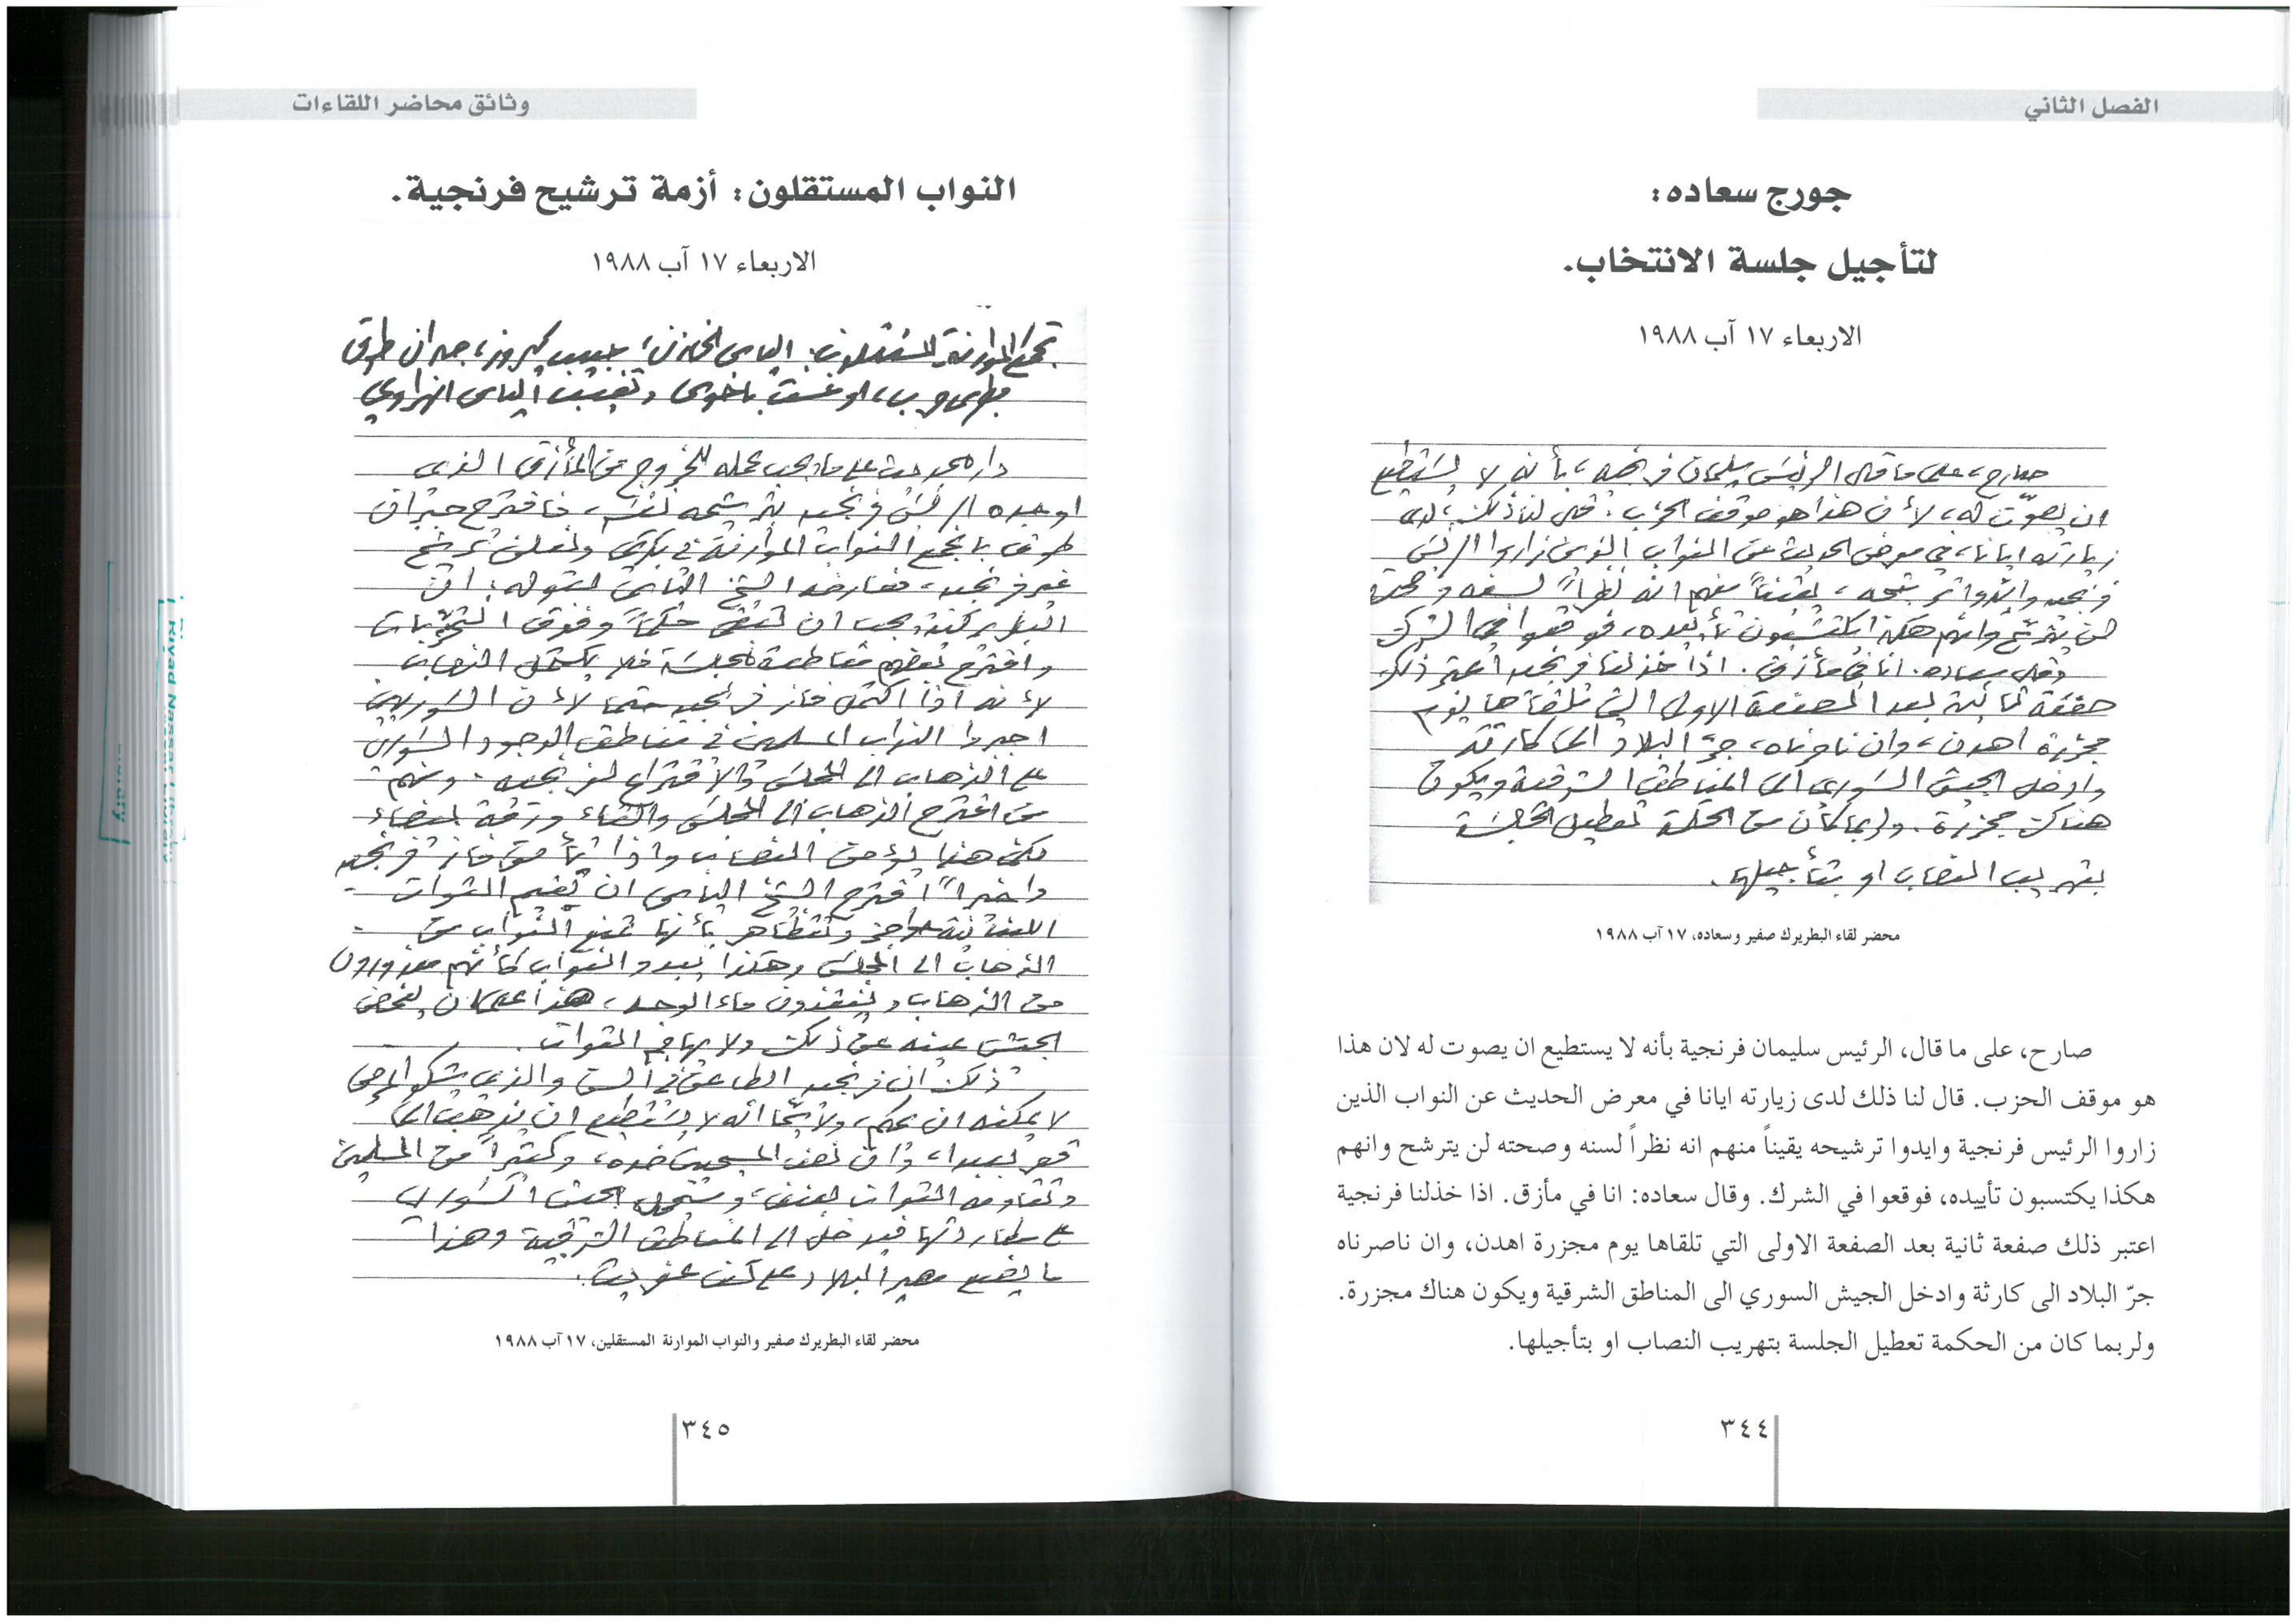 الفصل الثاني
جورج سعاده:
لتأجيل جلسة الانتخاب.
الاربعاء ١٧ آب ١٩٨٨
صارح، على ما قال، الرئيس سليمان فرنجيه، بأنه لا يستطيع
ان يصوّت له، لأن هذا هو موقف الحزب. قال لنا ذلك، لدى
زيارته ايانا، في معرض الحديث عن النواب الذين زاروا الرئيس
فرنجيه وايدوا ترشيحه، يقيناً منهم انه نظراً لسنه وصحته
لن يترشح وانهم هكذا يكتسبون تأييده، فوقعوا في الشرك
وقال سعاده: انا في مأزق. اذا خذلنا فرنجيه اعتبر ذلك
صفعة ثانية بعد الصفعة الاولى التي تلقاها يوم
مجزرة اهدن، وان ناصرناه، جرّ البلاد الى كارثة
وادخل الجيش السوري الى المناطق الشرقية ويكون
هناك مجزرة. ولربما كان من الحكمة تعطيل الجلسة
بتهريب النصاب او بتأجيلها.
محضر لقاء البطريرك صفير وسعاده، ١٧ آب ١٩٨٨
صارح، على ما قال، الرئيس سليمان فرنجية بأنه لا يستطيع ان يصوت له لان هذا
هو موقف الحزب. قال لنا ذلك لدى زيارته ايانا في معرض الحديث عن النواب الذين
زاروا الرئيس فرنجية وايدوا ترشيحه يقيناً منهم انه نظراً لسنه وصحته لن يترشح وانهم
هكذا يكتسبون تأييده، فوقعوا في الشرك. وقال سعاده: انا في مأزق. اذا خذلنا فرنجية
اعتبر ذلك صفعة ثانية بعد الصفعة الاولى التي تلقاها يوم مجزرة اهدن، وان ناصرناه
جرّ البلاد الى كارثة وادخل الجيش السوري الى المناطق الشرقية ويكون هناك مجزرة.
ولربما كان من الحكمة تعطيل الجلسة بتهريب النصاب او بتأجيلها.
٣٤٤
وثائق محاضر اللقاءات
النواب المستقلون: أزمة ترشيح فرنجية.
الاربعاء ١٧ آب ١٩٨٨
تجمع الموارنة المستقلون: الياس الخازن، حبيب كيروز، جبران طوق
بطرس حرب، اوغست باخوس وتغيب الياس الهراوي
دار الحديث على ما يجب عمله للخروج من المأزق الذي
اوجده الرئيس فرنجيه بترشيحه نفسه، فاقترح جبران
طوق بأن يجتمع النواب الموارنة في بكركي ونعلن ترشيح
غير فرنجيه، فعارضه الشيخ الياس بقوله: ان
البطريركية يجب ان تبقى حكماً وفوق التحزبات
واقترح بعضهم مقاطعة الجلسة فلا يكتمل النصاب
لأنه اذا اكتمل فاز فرنجيه حتما لأن السوريين
اجبروا النواب المسلمين في مناطق الوجود السوري
على الذهاب الى المجلس والاقتراع لفرنجيه. ومنهم
من اقترح الذهاب الى المجلس والقاء ورقة بيضاء
لكن هذا يؤمن النصاب واذا تأمن فاز فرنجيه
واخيراً اقترح الشيخ الياس ان تقيم القوات
اللبنانية حواجز وتتظاهر بأنها تمنع النواب من
الذهاب الى المجلس وهكذا يبدو النواب كأنهم معذورون
من الذهاب وينقذون ماء الوجه، هذا على ان يغمض
الجيش عينه عن ذلك ولا يهاجم القوات.
ذلك ان فرنجيه الطاعن في السن والذي يشكو المرض
لا يمكنه ان يحكم، ولا سيما انه لا يستطيع ان يذهب الى
قصر بعبدا، وان نصف المسيحيين ضده، وكثيراً من المسلمين
وتقاومه القوات بعنف، وسيحمل الجيش السوري
على مطاردتها فيدخل الى المناطق الشرقية وهذا
ما يضع مصير البلاد على كف عفريت.
محضر لقاء البطريرك صفير والنواب الموارنة المستقلين، ١٧ آب ١٩٨٨
٣٤٥